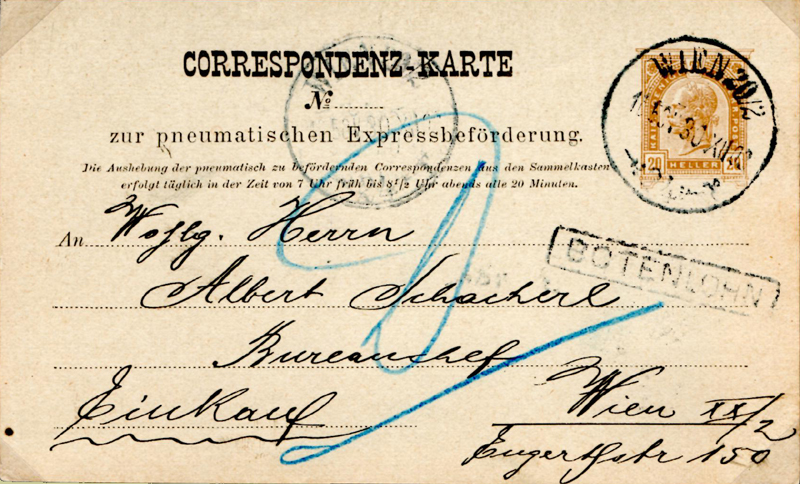 CORRESPONDENZ-KARTE
№
zur pneumatischen Expressbeförderung.
Die Aushebung der pneumatisch zu befördernden Correspondenzen aus den Sammelkasten
erfolgt täglich in der Zeit von 7 Uhr früh bis 8½ Uhr abends alle 20 Minuten.
WIEN 20/2
20 HELLER 20
An Wohlg. Herrn
BOTENLOHN
Albert Schacherl
Bureauchef
Einkauf
Wien XX/2
Engerthstr 150